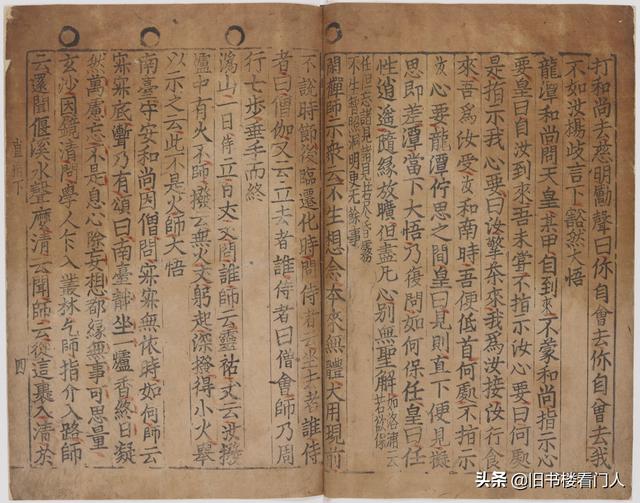 打和尚去慈明勵聲曰你自會去你自會去我
不如汝楊歧言下豁然大悟
龍潭和尚問天皇某甲自到來不蒙和尚指示心
要皇曰自汝到來吾未嘗不指示汝心要曰何處
是指示我心要曰汝擎茶來我爲汝接汝行食
來吾爲汝受汝和南時吾便低首何處不指示
汝心要龍潭佇思之間皇曰見則直下便見擬
思即差潭當下大悟乃復問如何保任皇曰任
性逍遙隨緣放曠但盡凡心別無聖解如洛浦云若欲保
任但忘諸見諸見若忘昏霧
不生智照洞明更無餘事
闍禪師示衆云不生想念本來無體大用現前
不說時節後臨遷化時問侍者云坐去者誰侍
者曰僧伽又云立去者誰侍者曰僧會師乃周
行七步垂手而終
潙山一日侍立百丈丈問誰師云靈祐丈云汝撥
爐中有火不師撥云無火丈躬起深撥得小火擧
以示之云此不是火師大悟
南臺守安和尚因僧問寂寂無依時如何師云
寂寂底漸乃有頌曰南臺靜坐一爐香終日凝
然萬慮忘不是息心除妄想都緣無事可思量
玄沙因鏡清問學人乍入叢林乞師指介入路師
云還聞偃溪水聲麽清云聞師云從這裏入清於
直指下
四
头条 @旧书楼看门人